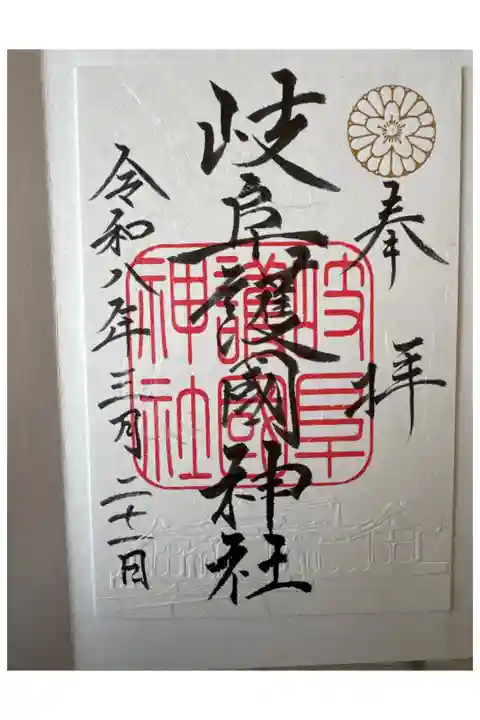 奉拝
岐阜護國神社
岐阜
護國
神社
令和八年三月二十一日